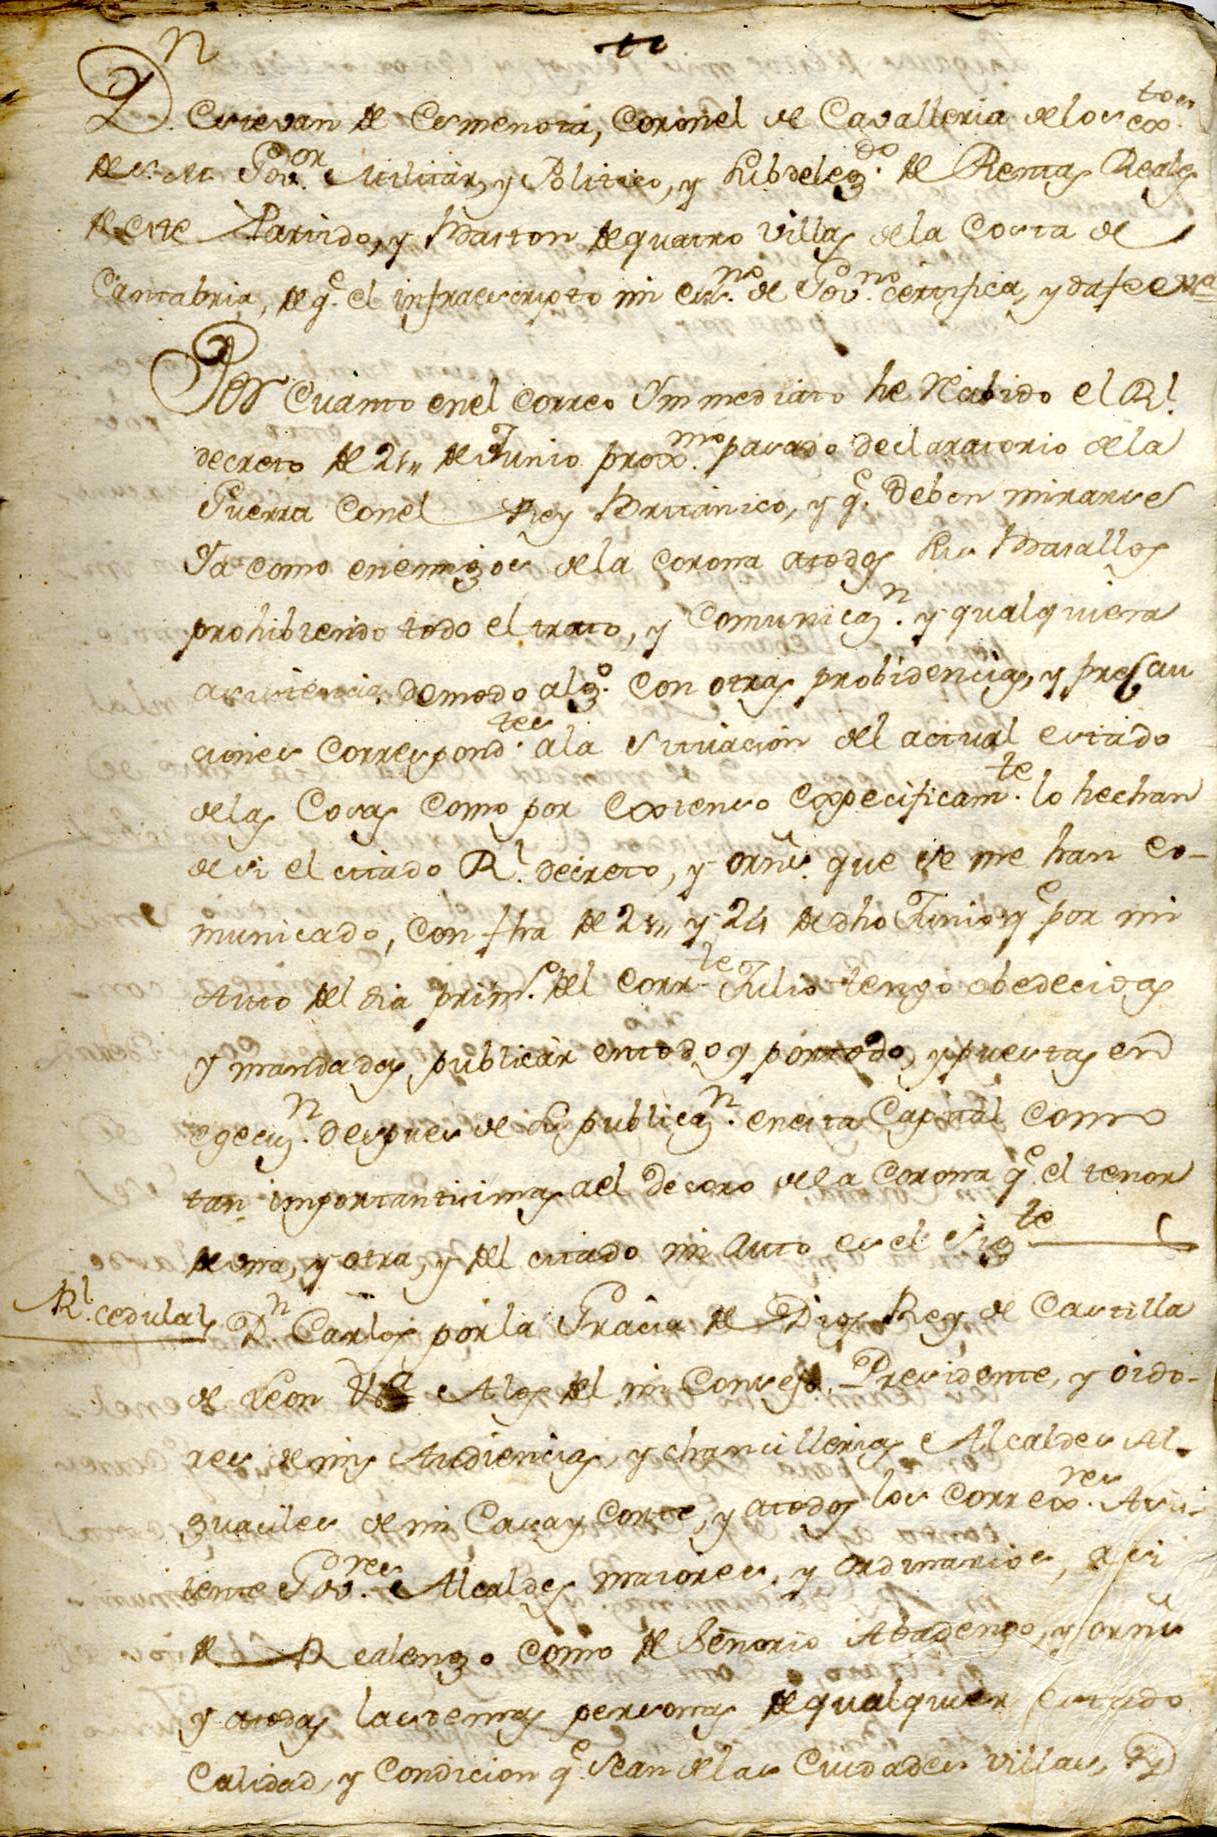 Dn. Estevan de Esmenota, Coronel de Cavalleria de los extos.
de S.M. Govor. Militar, y Politico, y Subdelegdo. de Rentas Reales
de este Partido, y Baston de quatro Villas de la Costa de
Cantabria, de q.e el infraescripto mi esno. de Govno. certifica, y da fee &ca
Por Cuanto en el Correo Ymmediato he Recibido el Rl.
decreto de 21,, de Junio proxmo. pasado declaratorio de la
Guerra con el Rey Britanico, y q.e deben mirarse
Ya como enemigos de la Corona a todos sus Basallos
prohibiendo todo el trato, y Comunicazn. y qualquiera
asistencia de modo algo. con otras probidencias, y precau
ciones correspondtes. a la situacion del actual estado
de las Cosas como por extenso expecificamte. lo hechan
de si el citado Rl. decreto, y orns. que se me han co-
municado, con fha de 21,, y 24 de dho Junio y q.e por mi
Auto del dia prim.o del corrte. Julio tengo obedecidas
y mandadas publicar en todo, y por todo, y puestas en
egecuzn. despues de su publicazn. en esta Capital como
tan importantisimas al desero de la Corona q.e el tenor
de una, y otra, y del citado mi Auto es el sigte.
Rl. cedula Dn Carlos por la Gracia de Dios Rey de Castilla
de Leon &a A los del mi Consejo, Presidente, y oido-
res de mis Audiencias, y chancillerias Alcaldes Al-
guaciles de mi Casa y Corte, y a todos los Correxres. Asis-
tente Govres. Alcaldes maiores, y ordinarios, asi
de Realengo como de Señorio Abadengo, y orns
y a todas las demas personas de qualquier estado
Calidad, y Condicion q.e sean de las Ciudades Villas, y